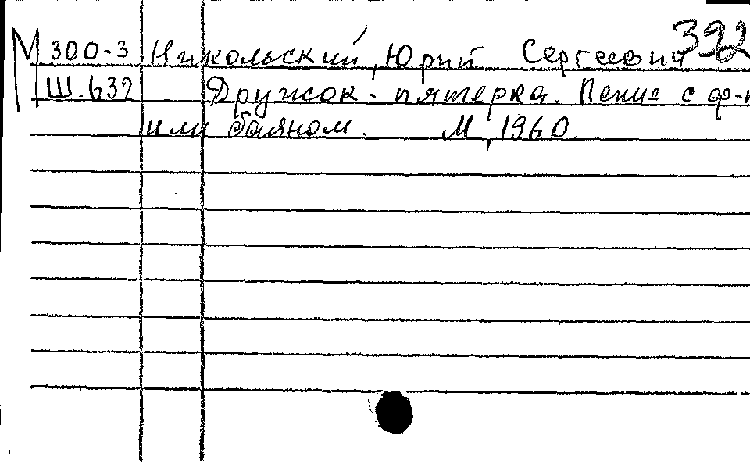 М 300-3 Никольский, Юрий Сергеевич 392
Ш.632 Дружок-пятерка. Пение с ф-п
или баяном. М., 1960